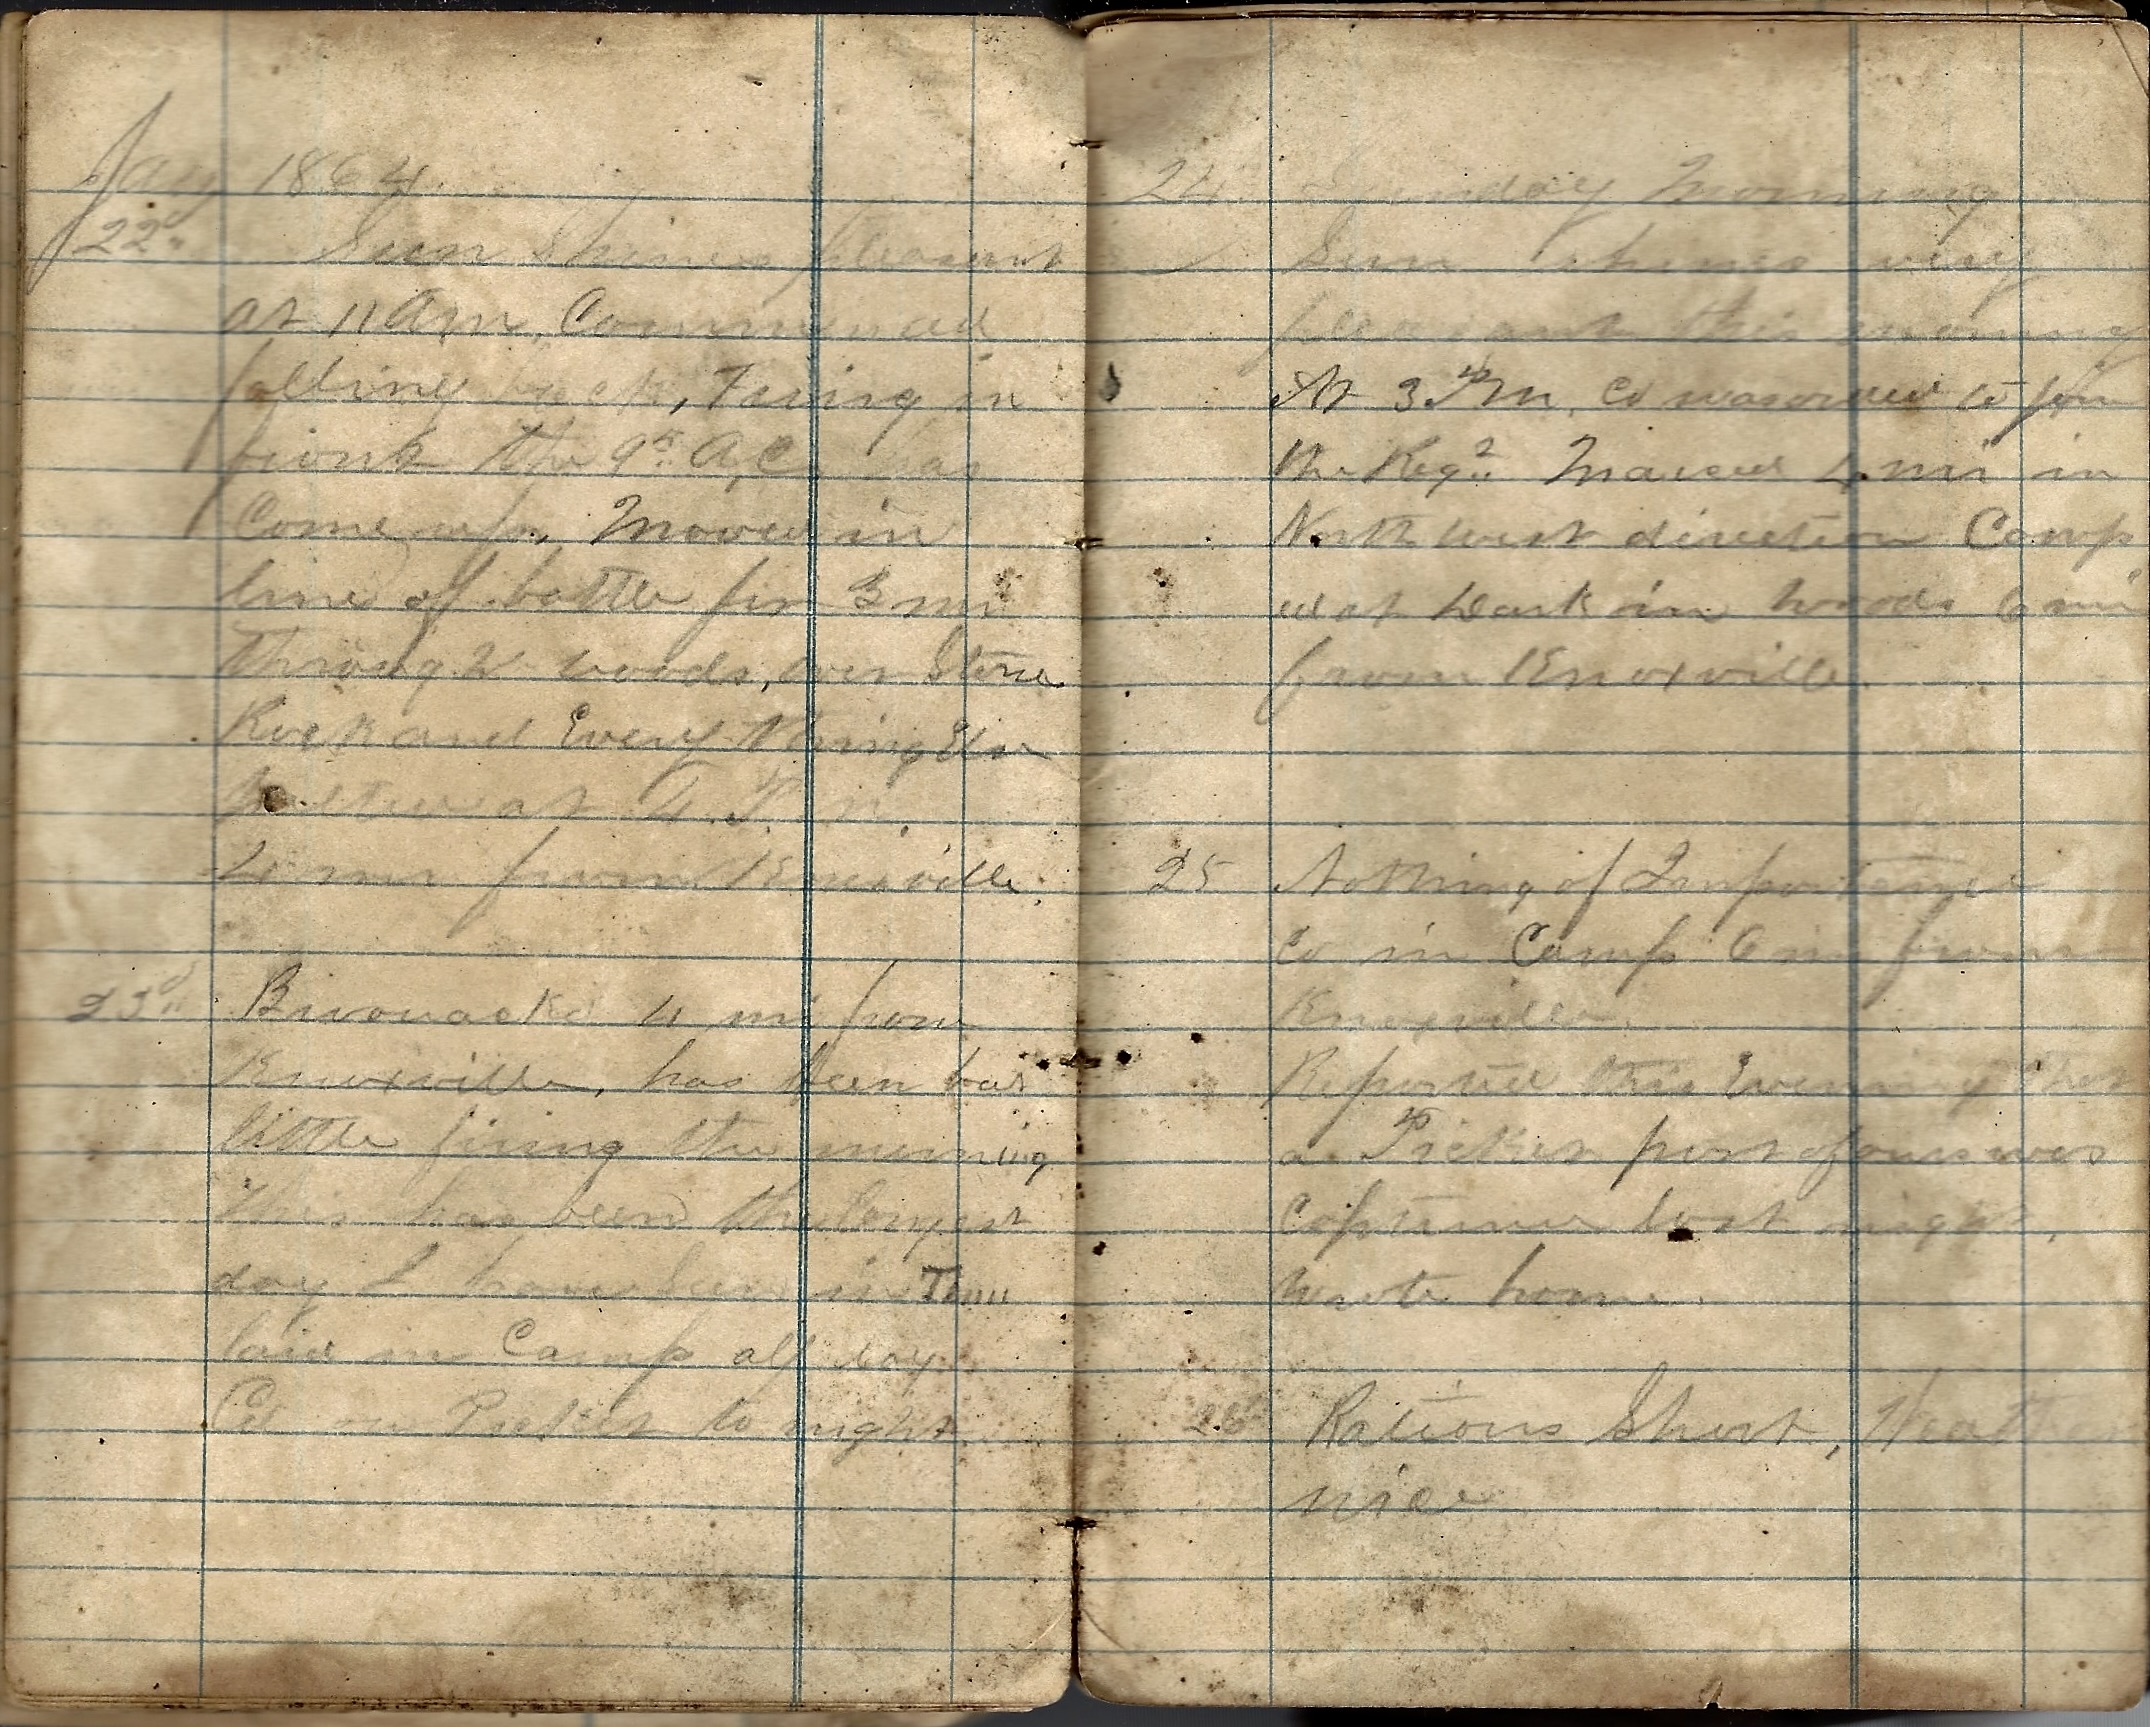 Jany 1864
22d Sun Shines pleasant
at 11 Am Commenced
falling back, Facing in
front the 9th A, C, has
Come up, Moved in
line of battle for 3 mi
Through woods, over Stone
Rock and Every thing Else
Halted at 4 P. m.
4 mi from Knoxville.
23d Bivouacked 4 mi from
Knoxville, has been but
little firing this morning
This has been the longest
day I have Seen in Tenn
laid in Camp all day
Co on Picket to night
24 Sunday Morning
Sun Shines very
pleasant this morning
At 3 Pm. Co was ordered to join
the Regt Moved 4 mi in
North west direction Camp
ed at dark in woods 6 mi
from Knoxville.
25 Nothing of Importance
Co in Camp 6 mi from
Knoxville.
Reported this Evening that
a Picket post of ours was
Captured last night,
Wrote home.
26 Rations Short,
nice